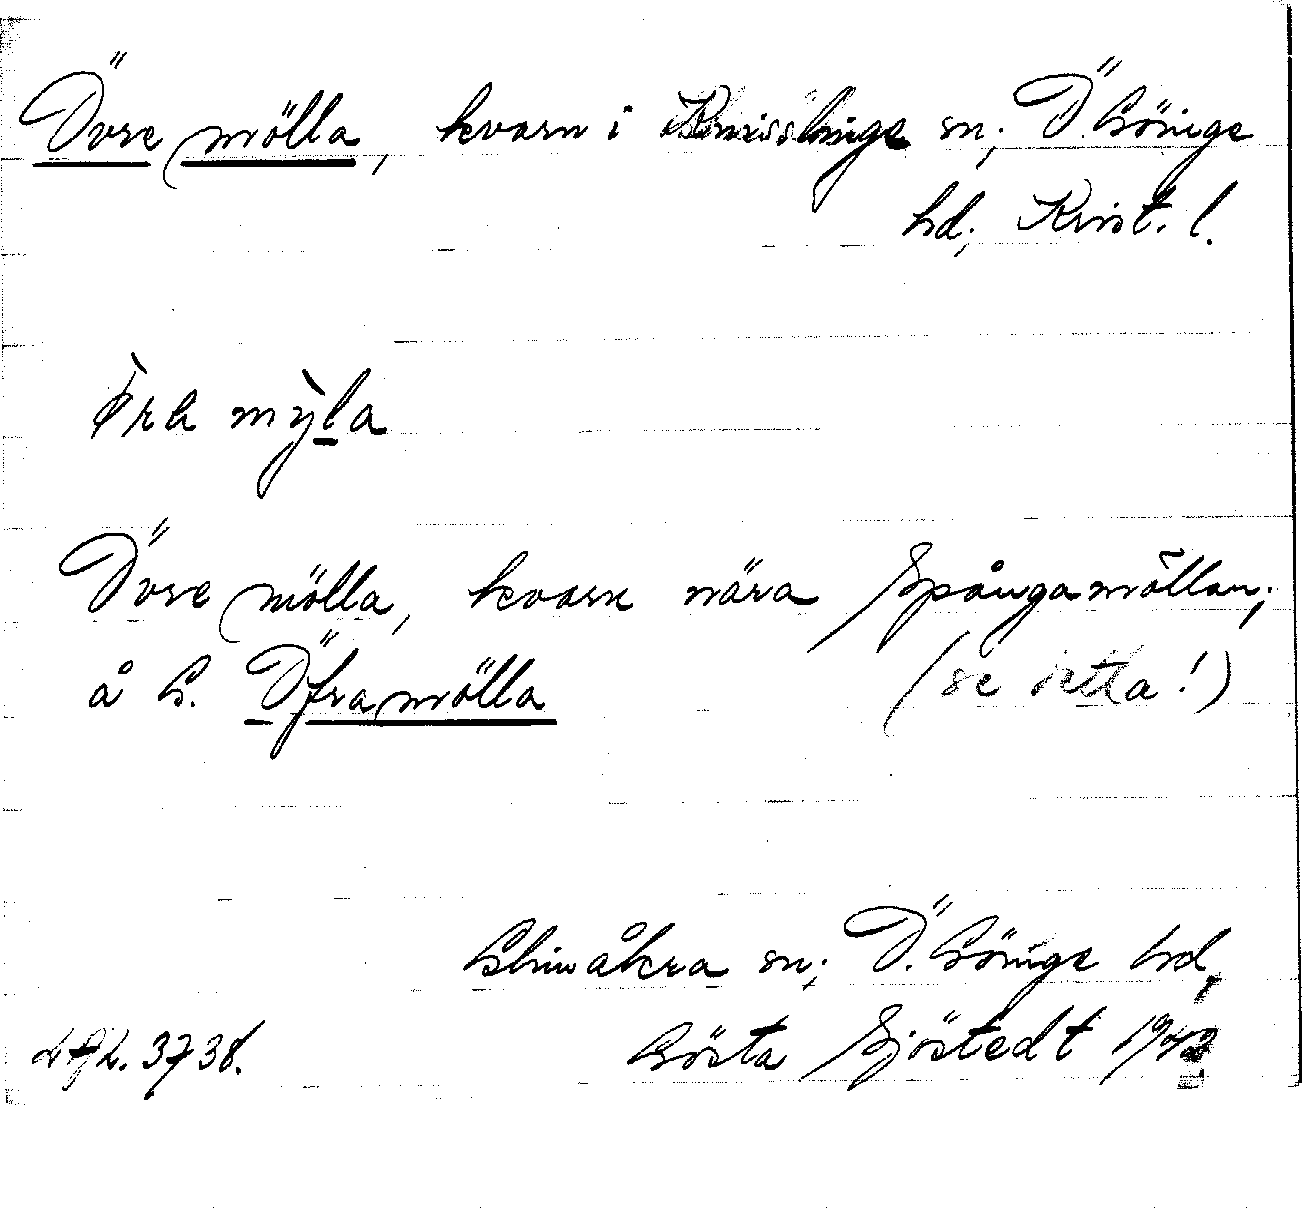 Övre mölla, kvarn i Knisslinge sn; Ö. Göinge
hd; Krist. l.
mỳla
Övre mölla, kvarn nära Spångamöllan;
å G. Öframölla (se detta!)
Glimåkra sn; Ö. Göinge hd,
Gösta Sjöstedt 1942